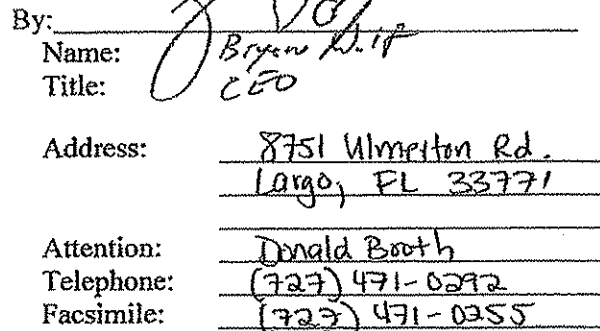 By:
Name: Bryan
Title: CEO
Address: 8751 Ulmerton Rd.
Largo, FL 33771
Attention: Donald Booth
Telephone: (727) 471-0292
Facsimile: (727) 471-0255